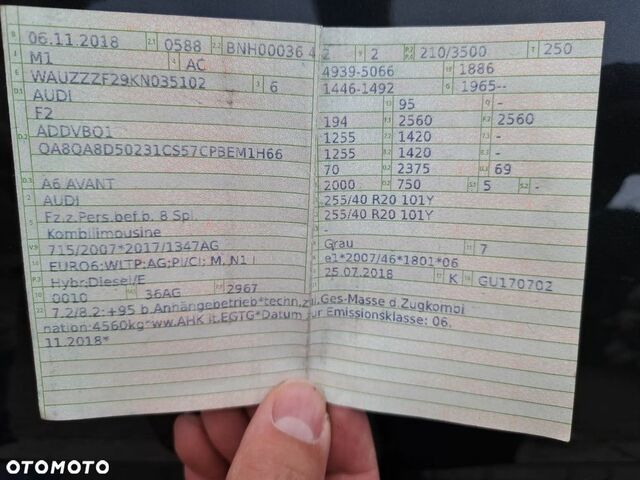 B 06.11.2018 2.1 0588 2.2 BNH00036 4
J M1 4 AC
E WAUZZZF29KN035102 3 6
D.1 AUDI
F2
ADDVBQ1
D.2 QA8QA8D50231CS57CPBEM1H66
D.3 A6 AVANT
2 AUDI
5 Fz.z.Pers.bef.b. 8 Spl.
Kombilimousine
V.9 715/2007*2017/1347AG
14 EURO6;WLTP;AG;PI/CI; M, N1 I
P.3 Hybr.Diesel/E
10 0010 36AG 2967
22 7.2/8.2:+95 b.Anhängebetrieb*techn.zul.Ges-Masse d.Zugkombi
nation:4560kg*ww.AHK lt.EGTG*Datum zur Emissionsklasse: 06.
11.2018*
2 9 2 210/3500 T 250
4939-5066 1886
1446-1492 G 1965--
95 Q -
194 F.1 2560 F.2 2560
1255 1420 -
1255 1420 -
70 2375 U.3 69
2000 O.2 750 S.1 5 S.2 -
255/40 R20 101Y
255/40 R20 101Y
-
Grau 11 7
e1*2007/46*1801*06
25.07.2018 17 K GU170702
OTOMOTO